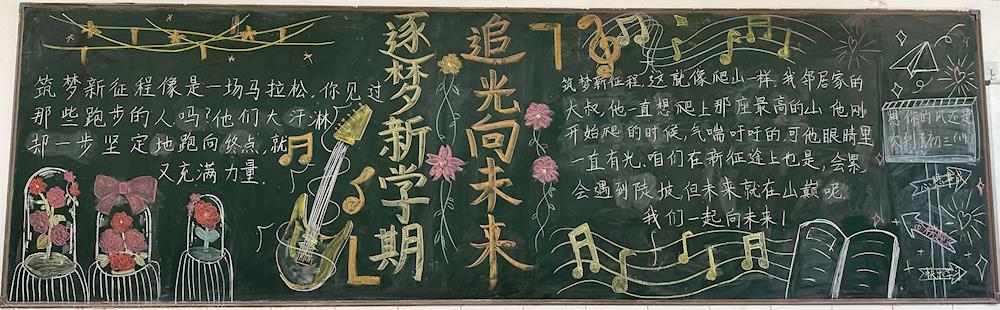 筑梦新征程像是一场马拉松,你见过
那些跑步的人吗?他们大汗淋
却一步坚定地跑向终点,就
又充满力量.
逐梦新学期
追光向未来
筑梦新征程,这就像爬山一样.我邻居家的
大叔,他一直想爬上那座最高的山,他刚
开始爬的时候,气喘吁吁的,可他眼睛里
一直有光.咱们在新征途上也是,会累
会遇到陡坡,但未来就在山巅呢.
我们一起向未来!
你的风还是
吹到了初三(4)